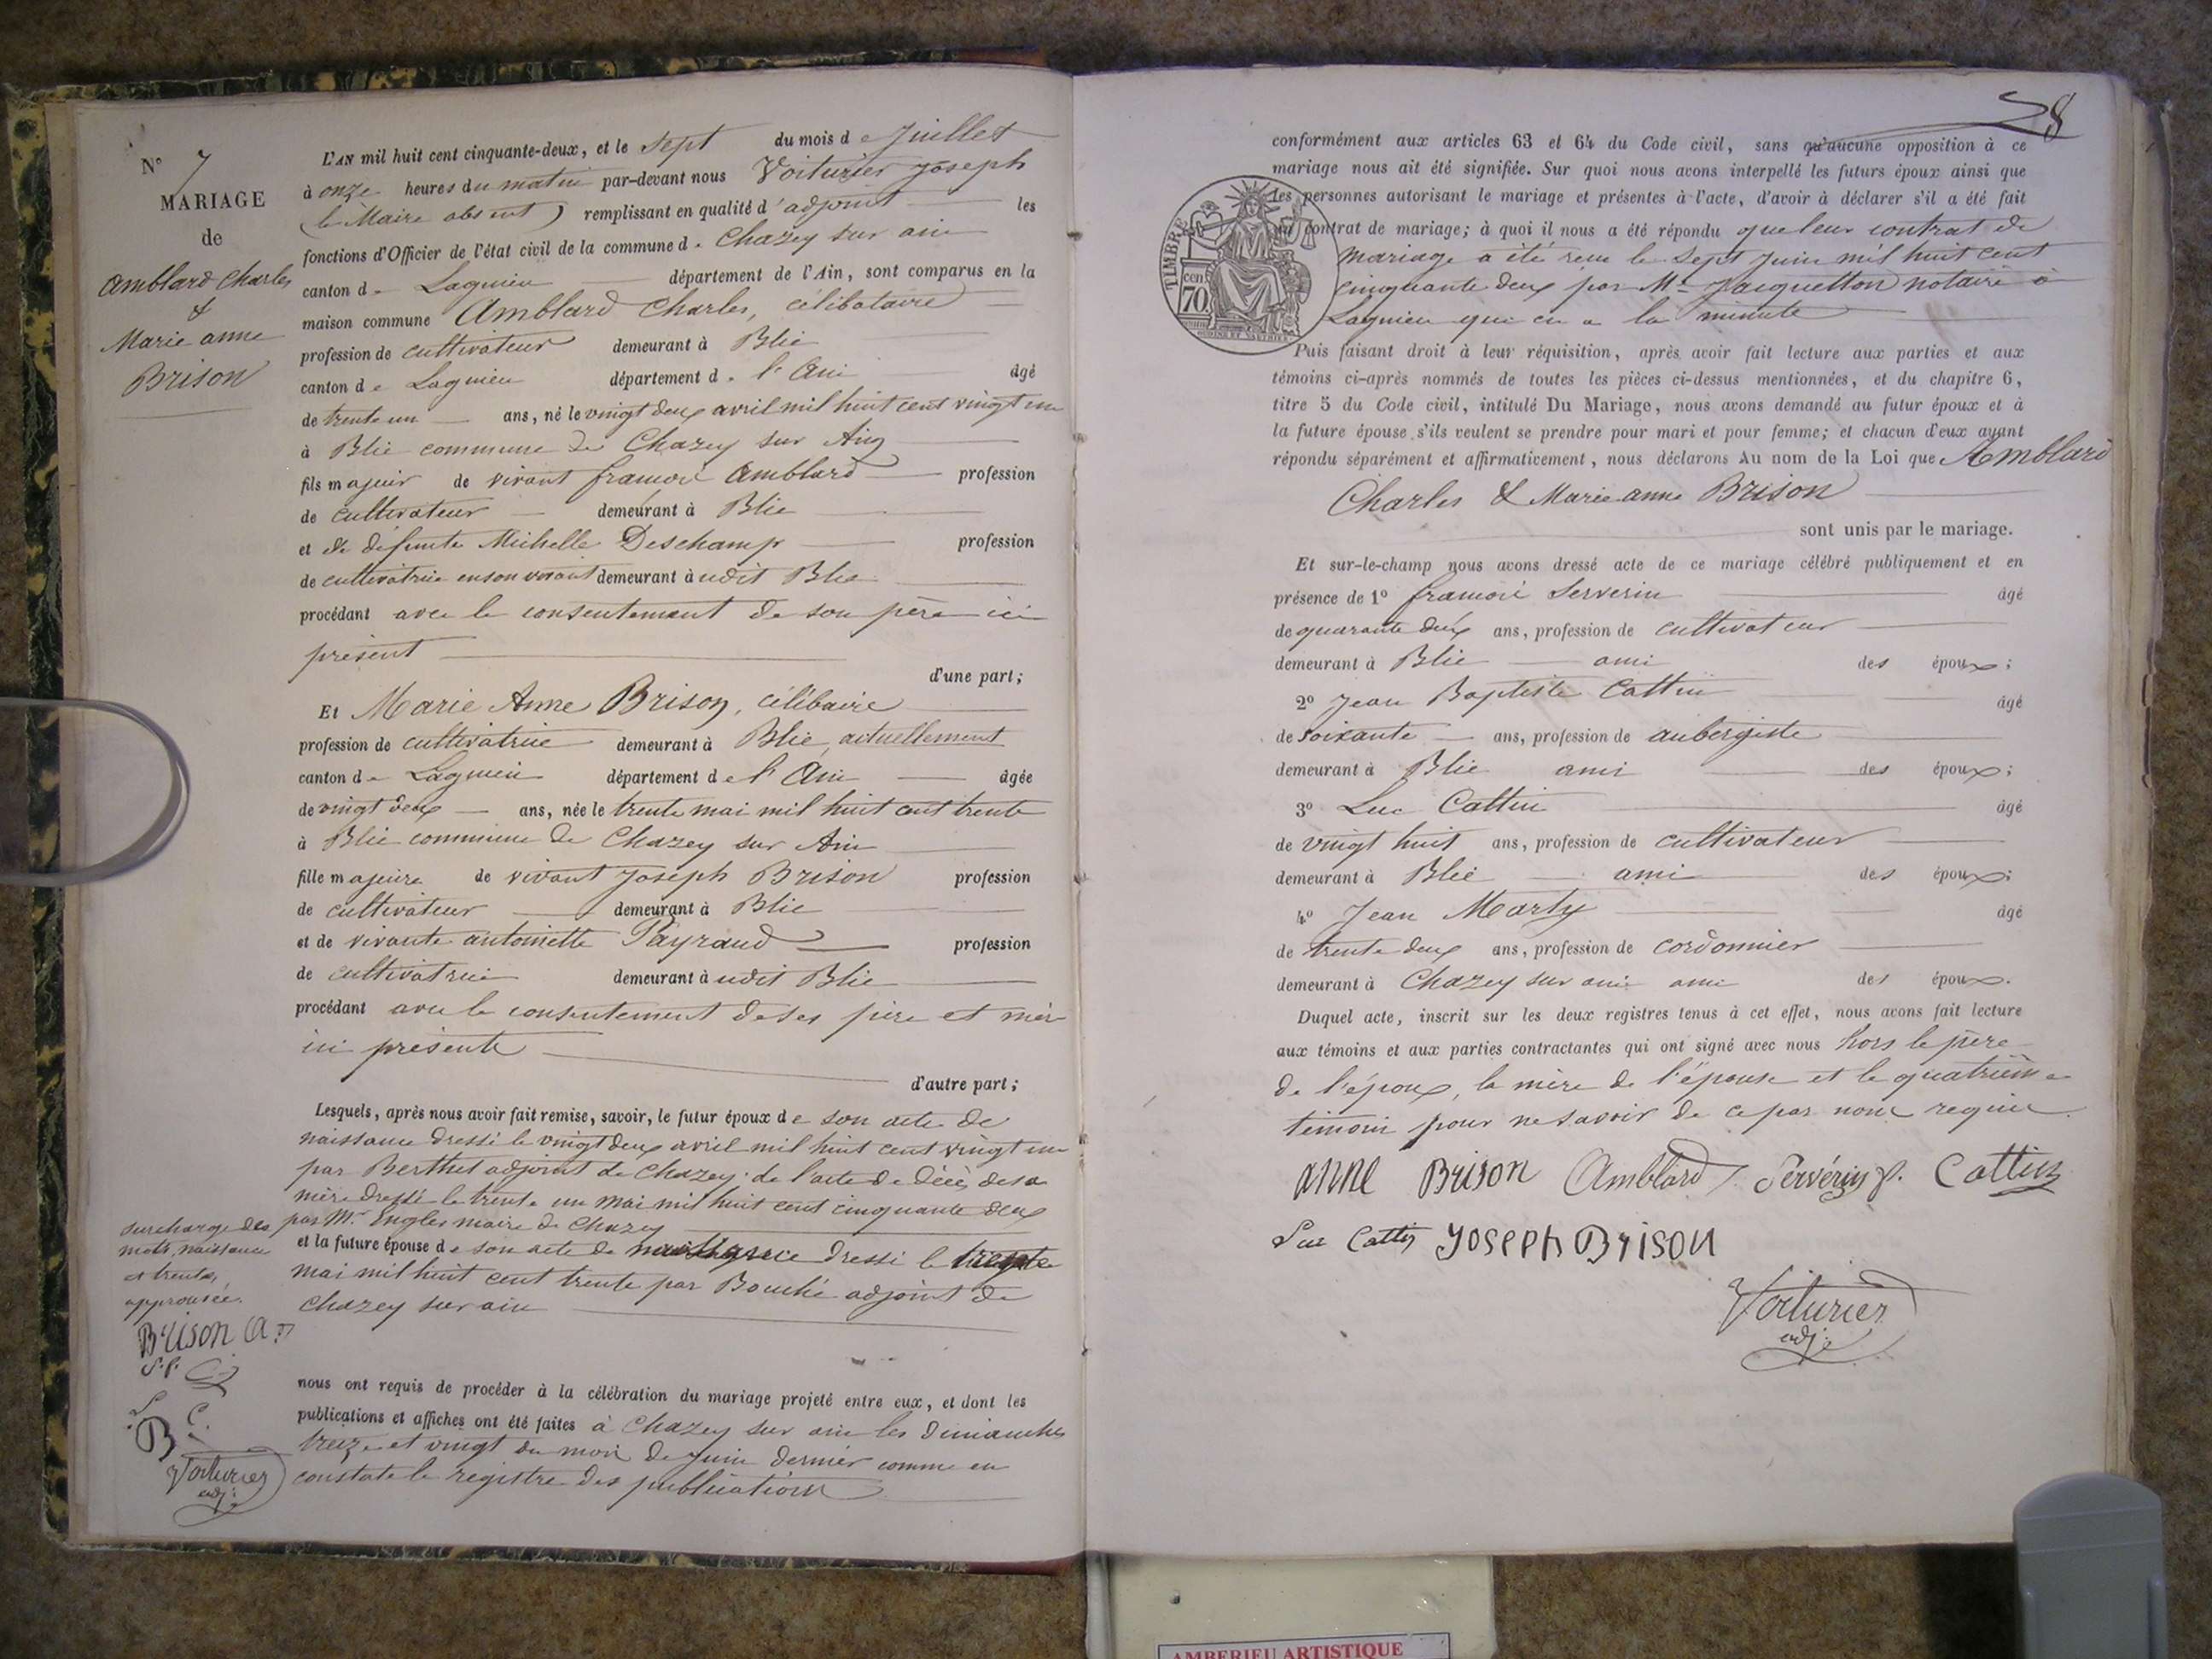 N° 7
MARIAGE
de
Amblard Charles
&
Marie anne
Brison
L'AN mil huit cent cinquante-deux, et le sept du mois de Juillet
à onze heures du matin par-devant nous Voiturier joseph
(le Maire absent) remplissant en qualité d'adjoint les
fonctions d'Officier de l'état civil de la commune de Chazey sur ain
canton de Lagnieu département de l'Ain, sont comparus en la
maison commune Amblard Charles, célibataire
profession de cultivateur demeurant à Blie
canton de Lagnieu département de l'Ain âgé
de trente un ans, né le vingt deux avril mil huit cent vingt un
à Blie commune de Chazey sur Ain
fils majeur de vivant françois Amblard profession
de cultivateur demeurant à Blie
et de défunte Michelle Deschamp profession
de cultivatrice en son vivant demeurant à udit Blie
procédant avec le consentement de son père ici
présent
d'une part;
Et Marie Anne Brison, célibaire
profession de cultivatrice demeurant à Blie, actuellement
canton de Lagnieu département de l'Ain âgée
de vingt deux ans, née le trente mai mil huit cent trente
à Blie commune de Chazey sur Ain
fille majeure de vivant Joseph Brison profession
de cultivateur demeurant à Blie
et de vivante antoinette Payraud profession
de cultivatrice demeurant à udit Blie
procédant avec le consentement de ses père et mère
ici présents
d'autre part;
Lesquels, après nous avoir fait remise, savoir, le futur époux de son acte de
naissance dressé le vingt deux avril mil huit cent vingt un
par Berthet adjoint de Chazey; de l'acte de décès de sa
mère dressé le trente un mai mil huit cent cinquante deux
par Mr Engles maire de Chazey
et la future épouse de son acte de naissance dressé le trente
mai mil huit cent trente par Bouché adjoint de
Chazey sur ain
surcharge des
mots, naissance
et trente,
approuvée.
Brison a
S. f. C
L. C.
B
Voiturier
adj.
nous ont requis de procéder à la célébration du mariage projeté entre eux, et dont les
publications et affiches ont été faites à Chazey sur ain les dimanches
treize et vingt du mois de juin dernier comme en
constate le registre des publications
28
conformément aux articles 63 et 64 du Code civil, sans qu'aucune opposition à ce
mariage nous ait été signifiée. Sur quoi nous avons interpellé les futurs époux ainsi que
les personnes autorisant le mariage et présentes à l'acte, d'avoir à déclarer s'il a été fait
un contrat de mariage; à quoi il nous a été répondu que leur contrat de
mariage a été reçu le sept juin mil huit cent
cinquante deux par Me Jacquetton notaire à
Lagnieu qui en a la minute
TIMBRE
cen
70
Puis faisant droit à leur réquisition, après avoir fait lecture aux parties et aux
témoins ci-après nommés de toutes les pièces ci-dessus mentionnées, et du chapitre 6,
titre 5 du Code civil, intitulé Du Mariage, nous avons demandé au futur époux et à
la future épouse s'ils veulent se prendre pour mari et pour femme; et chacun d'eux ayant
répondu séparément et affirmativement, nous déclarons Au nom de la Loi que Amblard
Charles & Marie anne Brison
sont unis par le mariage.
Et sur-le-champ nous avons dressé acte de ce mariage célébré publiquement et en
présence de 1° françois Serverin âgé
de quarante deux ans, profession de cultivateur
demeurant à Blie ami des époux;
2° Jean Baptiste Cattin âgé
de soixante ans, profession de aubergiste
demeurant à Blie ami des époux;
3° Luc Cattin âgé
de vingt huit ans, profession de cultivateur
demeurant à Blie ami des époux;
4° Jean Marty âgé
de trente deux ans, profession de cordonnier
demeurant à Chazey sur ain ami des époux.
Duquel acte, inscrit sur les deux registres tenus à cet effet, nous avons fait lecture
aux témoins et aux parties contractantes qui ont signé avec nous hors le père
de l'époux, la mère de l'épouse et le quatrième
témoin pour ne savoir de ce par nous requis.
anne Brison Amblard Servérin f. Cattin
Luc Cattin Joseph Brison
Voiturier
adj.
AMBERIEU ARTISTIQUE